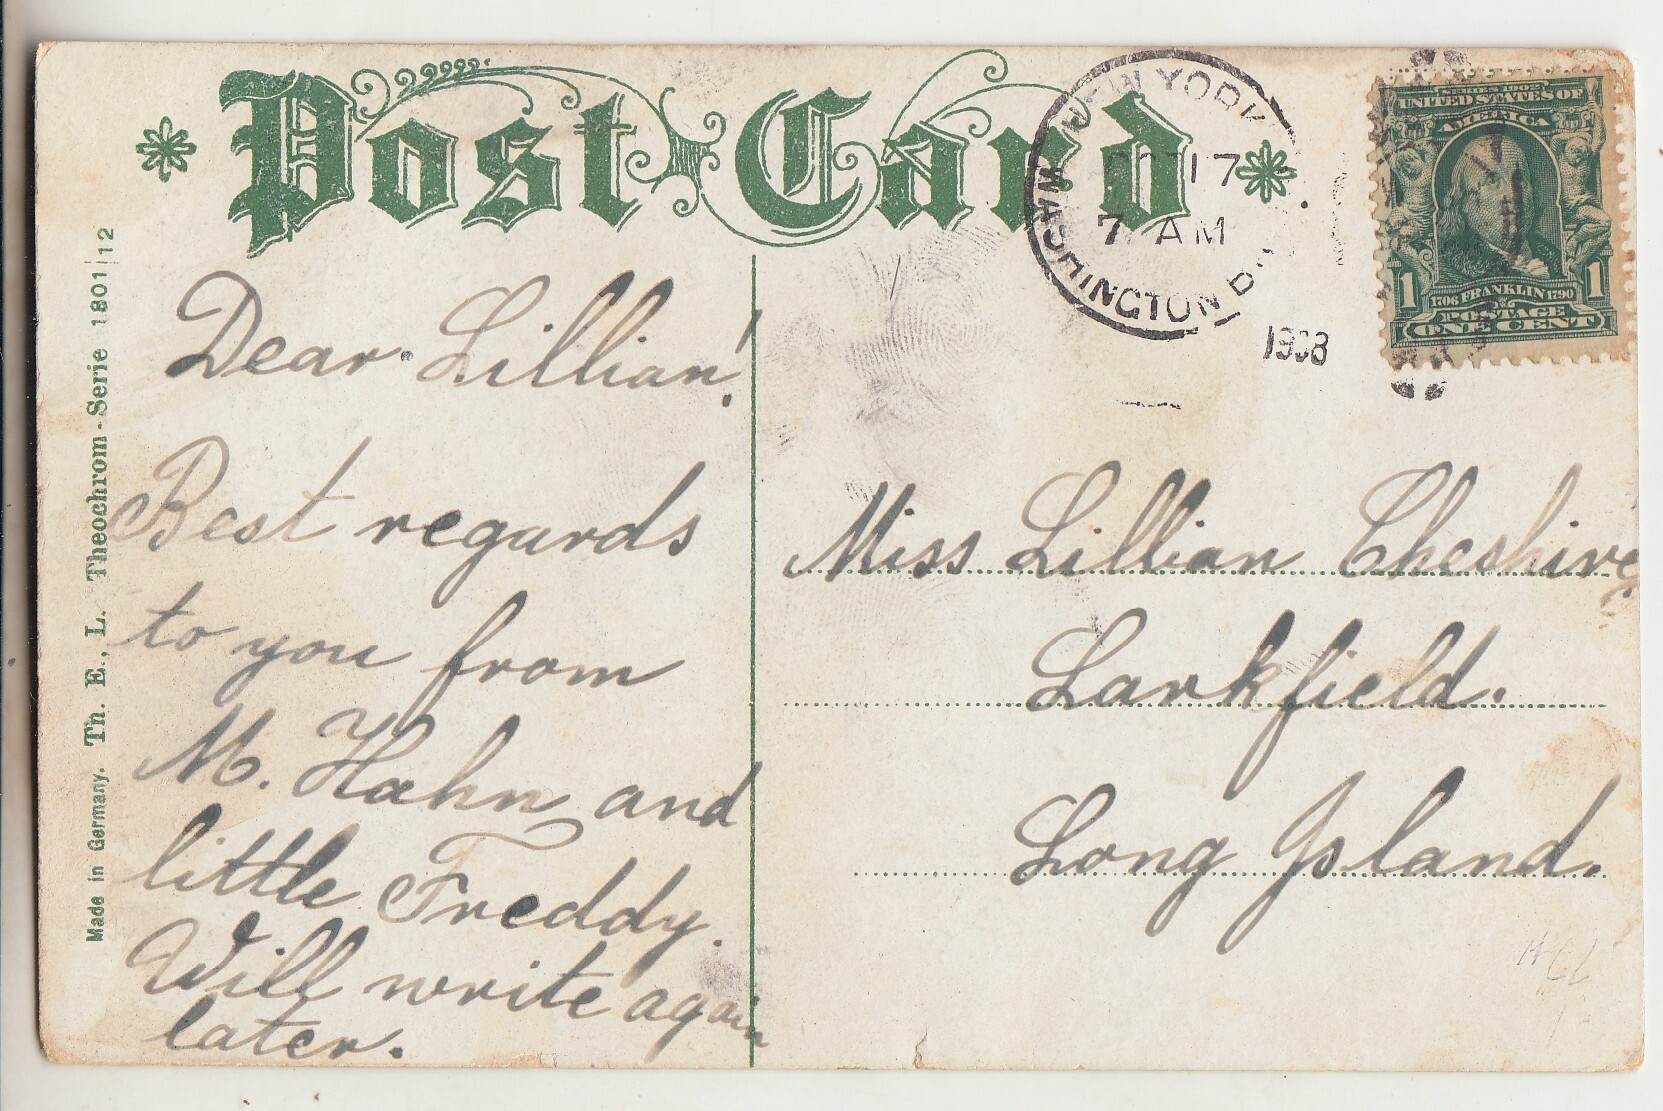 Post Card
Made in Germany. Th. E., L. Theochrom-Serie 1801|12
NEW YORK
OCT 17
7 AM
WASHINGTON BR.
1908
SERIES 1902
UNITED STATES OF
AMERICA
1 1
1706 FRANKLIN 1790
POSTAGE
ONE CENT
Dear Lillian!
Best regards
to you from
M. Hahn and
little Freddy.
Will write again
later.
Miss Lillian Cheshire,
Larkfield.
Long Island.